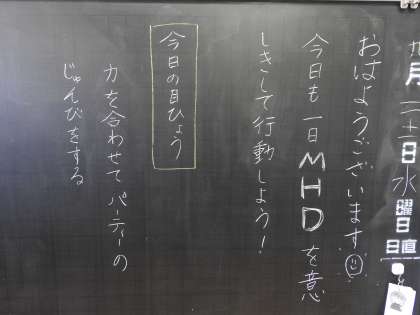 月
三十日
水曜日
日直
おはようございます
今日も一日MHDを意
しきして行動しよう!
今日の目ひょう
力を合わせてパーティーの
じゅんびをする